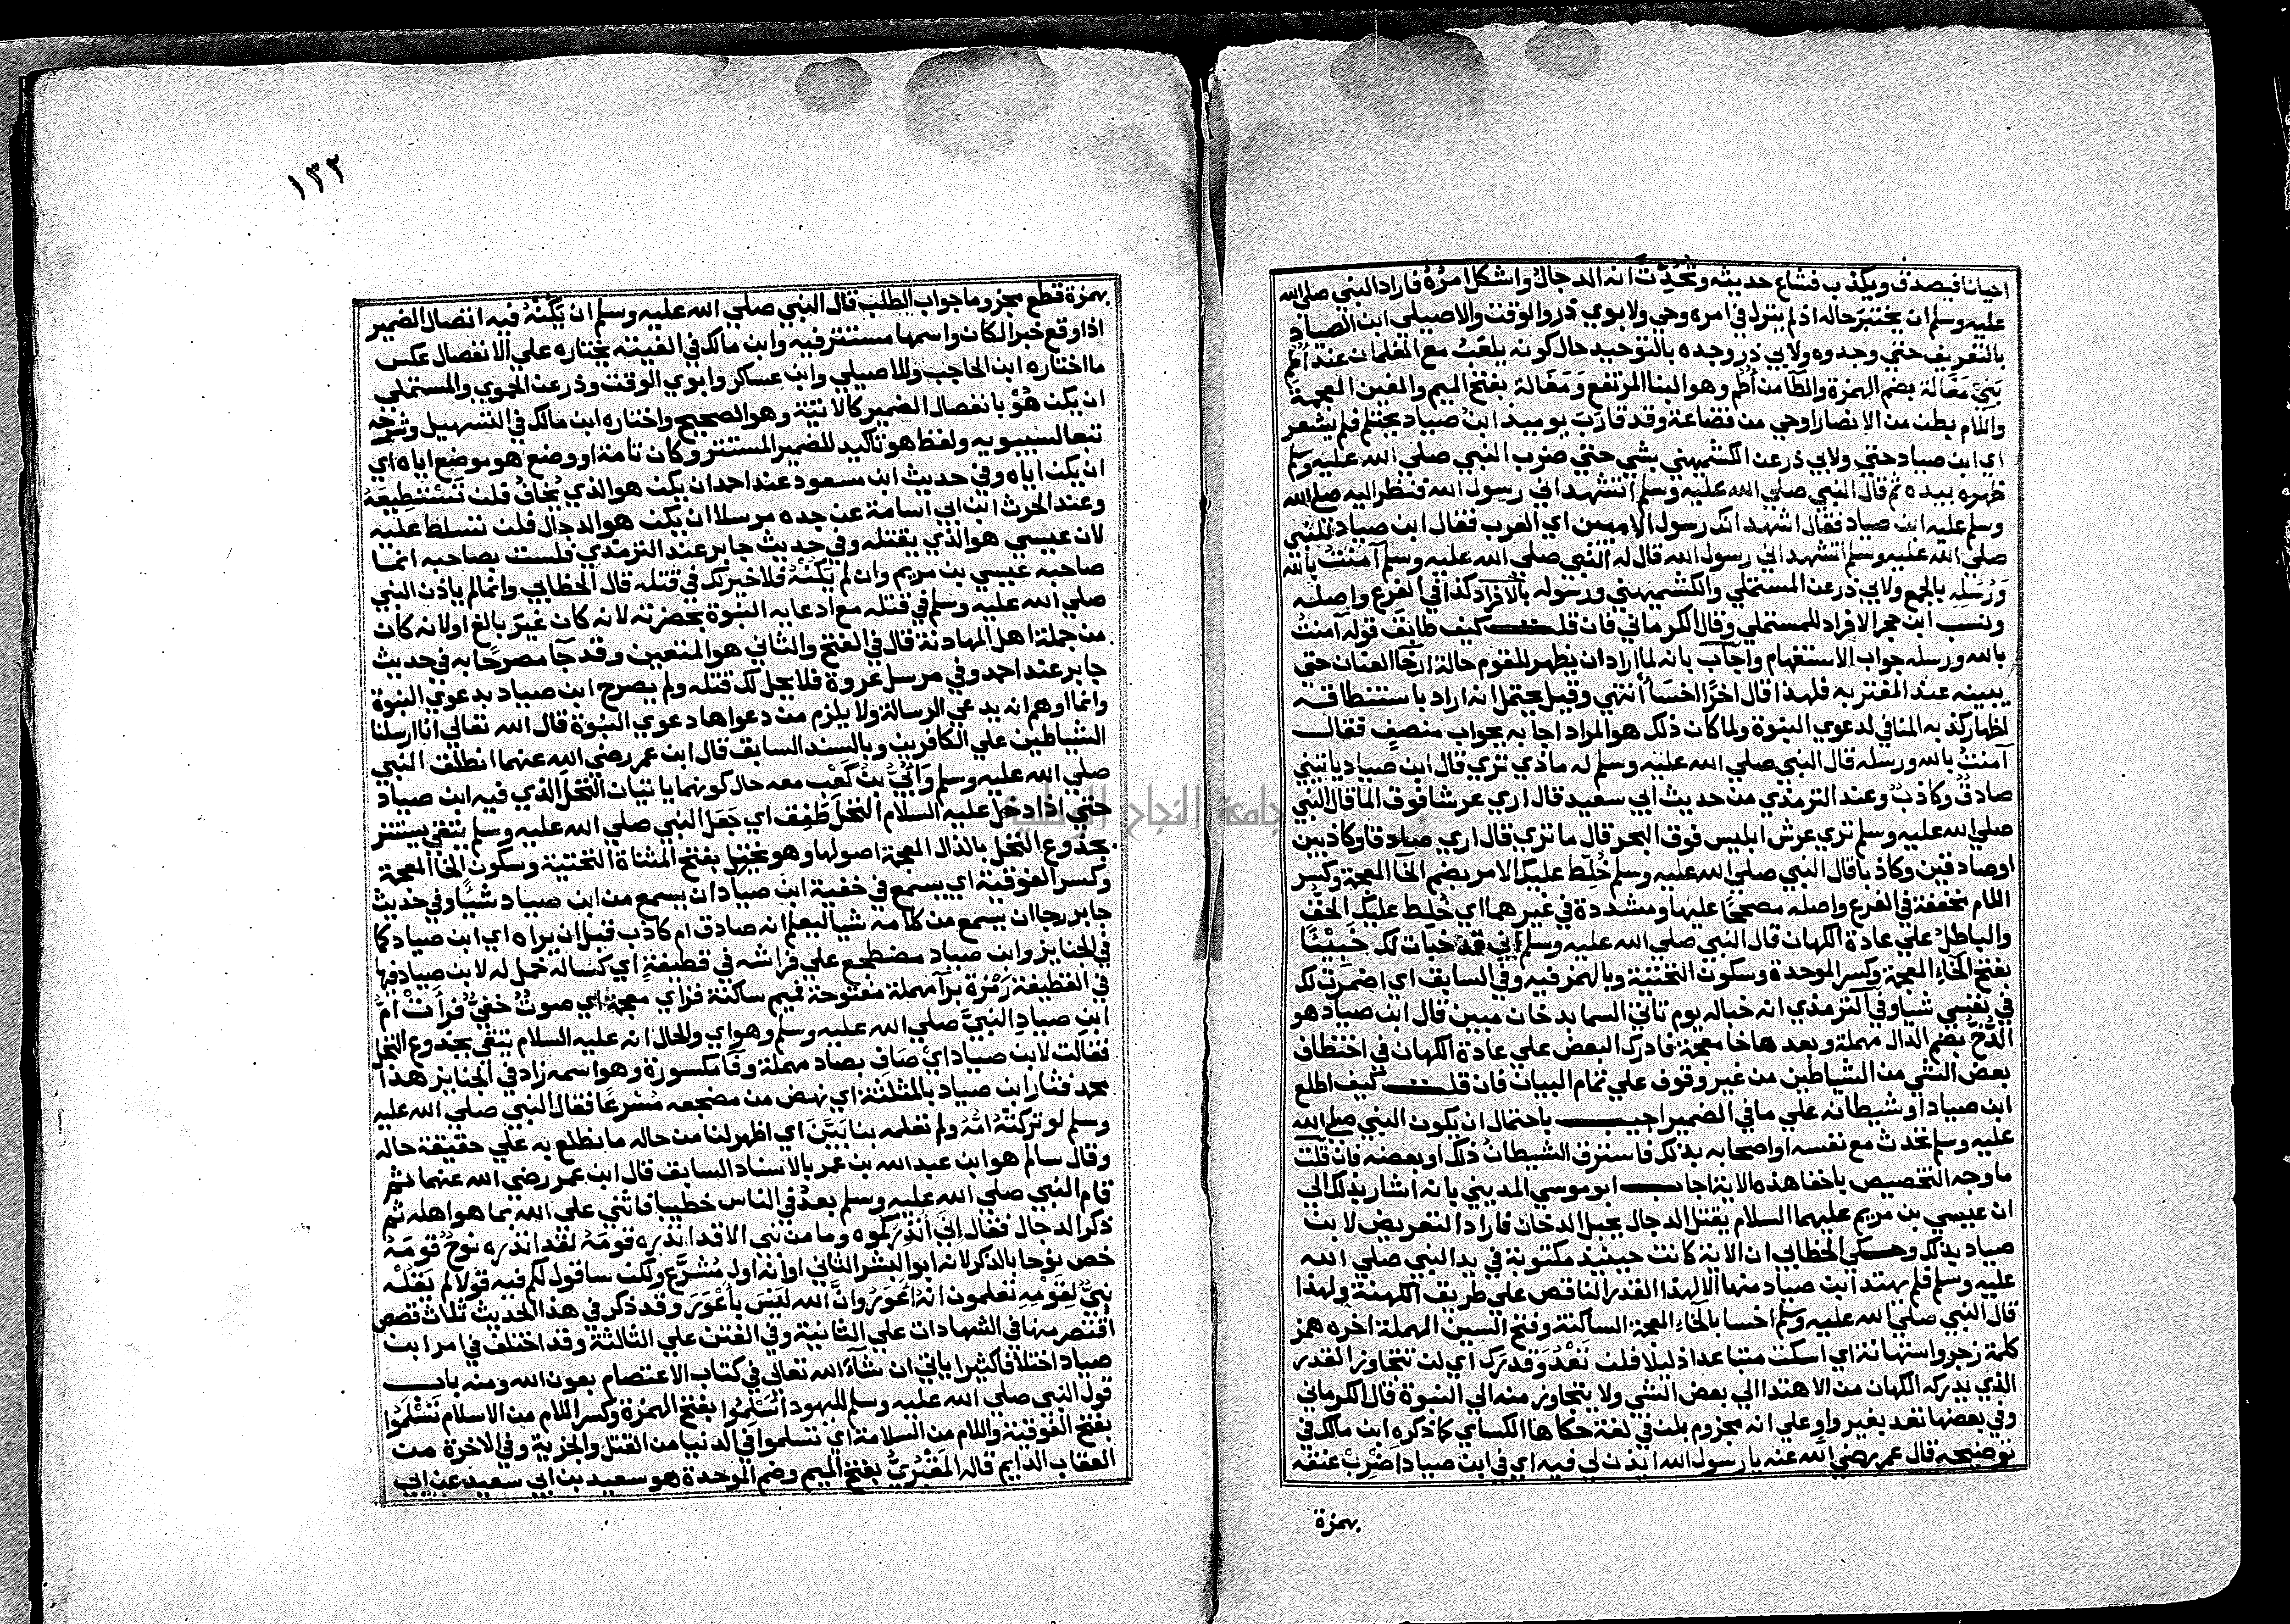 احيانا فيصدق ويكذب فشاع حديثه وتُحُدِّثَ انه الدجال واشكل امرُهُ فاراد النبي صلي الله
عليه وسلم ان يختبر حاله اذ لم ينزل في امره وحي ولابوي ذر والوقت والاصيلي ابن الصياد
بالتعريف حتي وجدوه ولابي ذر وجده بالتوحيد حال كونه يلعب مع الغلمان عند اُطُم
بَنِي مَغالة بضم الهمزة والطا من اُطُم وهو البنا المرتفع وَمَغَالة بفتح الميم والغين المعجمة
واللام بطن من الانصار اوحي من قضاعة وقد قارَبَ يوميذ ابنُ صياد يحتلم فلم يشعر
اي ابن صياد حتي ولابي ذر عن الكشميهني بشي حتي ضرب النبي صلي الله عليه وسلم
ظهره بيده ثم قال النبي صلي الله عليه وسلم اتشهد اني رسول الله فنظر اليه صلي الله
وسلم عليه ابن صياد فقال اشهد انك رسول الاميين اي العرب فقال ابن صياد للنبي
صلي الله عليه وسلم اتشهد اني رسول الله قال له النبي صلي الله عليه وسلم آمنتُ بالله
وَرُسُلِهِ بالجمع ولابي ذر عن المستملي والكشميهني ورسوله بالافراد كذا في الفرع واصله
ونسب ابن حجر الافراد للمستملي وقال الكرماني فان قلت كيف طابق قوله آمنت
بالله ورسله جواب الاستفهام واجاب بانه لما اراد ان يظهر للقوم حاله ارخا العنان حتي
يبينه عند المغتر به فلهذا قال اخرًا اخسا انتهي وقيل يحتمل انه اراد باستنطاقه
اظهار كذبه المنافي لدعوي النبوة ولما كان ذلك هو المراد اجابه بجواب منصف فقال
آمنتُ بالله ورسله قال النبي صلي الله عليه وسلم له ماذي تري قال ابن صياد ياتيني
صادقٌ وكاذبٌ وعند الترمذي من حديث ابي سعيد قال اري عرشا فوق الما قال النبي
صلي الله عليه وسلم تري عرش ابليس فوق البحر قال ما تري قال اري صادقا وكاذبين
او صادقين وكاذبا قال النبي صلي الله عليه وسلم خُلِطَ عليك الامر بضم الخا المعجمة وكسر
اللام مخففة في الفرع واصله مصححًا عليها ومشددة في غيرهما اي خُلِطَ عليك الحق
والباطلُ علي عادة الكهان قال النبي صلي الله عليه وسلم اني قد خبات لك خَبِيْئًا
بفتح الخاء المعجمة وكسر الموحدة وسكون التحتية وبالهمز فيه وفي السابق اي اضمرت لك
في نفسي شيا وفي الترمذي انه خباله يوم تاتي السما بدخان مبين قال ابن صياد هو
الدُّخُّ بضم الدال مهملة وبعدها خا معجمة فادرك البعض علي عادة الكهان في اختطاف
بعض الشي من الشياطين من غير وقوف علي تمام البيان فان قلت كيف اطلع
ابن صياد او شيطانه علي ما في الضمير اجيب باحتمال ان يكون النبي صلي الله
عليه وسلم تحدث مع نفسه او اصحابه بذلك فاسترق الشيطان ذلك او بعضه فان قلت
ما وجه التخصيص باخفا هذه الاية اجاب ابو موسي المديني بانه اشار بذلك الي
ان عيسي بن مريم عليهما السلام يقتل الدجال بجبل الدخان فاراد التعريض لابن
صياد بذلك وحكي الخطابي ان الاية كانت حينيذ مكتوبة في يد النبي صلي الله
عليه وسلم فلم يهتد ابن صياد منها الا لهذا القدر الناقص علي طريق الكهنة ولهذا
قال النبي صلي الله عليه وسلم اخسا بالخاء المعجمة الساكنة وفتح السين المهملة اخره همز
كلمة زجر واستهانة اي اسكت متباعدا ذليلا فلن تَعْدُوَ قدرَك اي لن تتجاوز القدر
الذي يدركه الكهان من الاهتدا الي بعض الشي ولا يتجاوز منه الي النبوة قال الكرماني
وفي بعضها تعد بغير واو علي انه مجزوم بلن في لغة حكاها الكساي كما ذكره ابن مالك في
توضيحه قال عمر رضي الله عنه يا رسول الله ايذن لي فيه اي في ابن صياد اضْرِبْ عنقه
بهمزة
١٣٢
بهمزة قطع مجزوما جواب الطلب قال النبي صلي الله عليه وسلم ان يَكُنْهُ فيه اتصال الضمير
اذا وقع خبرا لكان واسمها مستتر فيه وابن مالك في الفيته يختاره علي الانفصال عكس
ما اختاره ابن الحاجب وللاصيلي وابن عساكر وابوي الوقت وذر عن الحموي والمستملي
ان يكن هُوْ بانفصال الضمير كالاتية وهو الصحيح واختاره ابن مالك في التسهيل وشرحه
تبعا لسيبويه ولفظ هو تاكيد للضمير المستتر وكان تامة او وضع هو موضع اياه اي
ان يكن اياه وفي حديث ابن مسعود عند احمد ان يكن هو الذي يُخافُ فلن تَسْتَطِيعَهُ
وعند الحرث ابن ابي اسامة عن جده مرسلا ان يكن هو الدجال فلن تسلط عليه
لان عيسي هو الذي يقتله وفي حديث جابر عند الترمذي فلست بصاحبه انما
صاحبه عيسي بن مريم وان لم يَكُنْهُ فلا خير لك في قتله قال الخطابي وانما لم ياذن النبي
صلي الله عليه وسلم في قتله مع ادعايه النبوة بحضرته لانه كان غيرَ بالغ او لانه كان
من جملة اهل المهادنة قال في الفتح والثاني هو المتعين وقد جآ مصرحًا به في حديث
جابر عند احمد وفي مرسل عروة فلا يحل لك قتله ولم يصرح ابن صياد بدعوي النبوة
وانما اوهم انه يدعي الرسالة ولا يلزم من دعواها دعوي النبوة قال الله تعالي انا ارسلنا
الشياطين علي الكافرين وبالسند السابق قال ابن عمر رضي الله عنهما انطلق النبي
صلي الله عليه وسلم وَاُبَيُّ بنُ كَعْب معه حال كونهما ياتيان النخلَ الذي فيه ابن صياد
حتي اذا دخل عليه السلام النخلَ طَفِق اي جَعَل النبي صلي الله عليه وسلم يتقي يستتر
بجذوع النخل بالذال المعجمة اصولها وهو يختِل بفتح المثناة التحتية وسكون الخا المعجمة
وكسر الفوقية اي يسمع في خفية ابن صياد ان يسمع من ابن صياد شيئا وفي حديث
جابر رجا ان يسمع من كلامه شيا ليعلم انه صادق ام كاذب قبل ان يراه اي ابن صياد كما
في الجنايز وابن صياد مضطجع علي فراشه في قطيفةٍ اي كساله خمل له لابن صياد فيها
في القطيفة رَمْزة برآ مهملة مفتوحة فميم ساكنة فزاي معجمة اي صوتٌ خفيٌّ فرأتْ اُمُّ
ابن صيادٍ النبيَّ صلي الله عليه وسلم وهو اي والحال انه عليه السلام يتقي بجذوع النخل
فقالت لابن صياد ايْ صَافِ بصاد مهملة وفا مكسورة وهو اسمه زاد في الجنايز هذا
محمد فثار ابن صياد بالمثلثة اي نهض من مضجعه مُسْرعًا فقال النبي صلي الله عليه
وسلم لو تركتْهُ امُّه ولم تعلمه بنا بَيَّنَ اي اظهر لنا من حاله ما نطلع به علي حقيقة حاله
وقال سالم هو ابن عبد الله بن عمر بالاسناد السابق قال ابن عمر رضي الله عنهما ثم
قام النبي صلي الله عليه وسلم بعدُ في الناس خطيبا فاثني علي الله بما هو اهله ثم
ذكر الدجال فقال اِنِّي اُنْذِرُكُموه وما من نبي الا قد انذره قومَهُ لقد انذره نوحٌ قومَهُ
خص نوحا بالذكر لانه ابو البشر الثاني او انه اول مُشَرِّع ولكن ساقول لكم فيه قولا لم يَقُلْهُ
نبيٌّ لِقَوْمِهِ تعلمون انهُ اَعْوَرُ وانَّ الله ليْسَ باَعْوَرَ وقد ذكر في هذا الحديث ثلاث قصص
اقتصر منها في الشهادات علي الثانية وفي الفتن علي الثالثة وقد اختلف في امر ابن
صياد اختلافا كثيرا ياتي ان شآء الله تعالي في كتاب الاعتصام بعون الله ومنه باب
قول النبي صلي الله عليه وسلم لليهود اَسْلِمُوا بفتح الهمزة وكسر اللام من الاسلام تَسْلَمُوا
بفتح الفوقية واللام من السلامة اي تسلموا في الدنيا من القتل والجزية وفي الاخرة من
العقاب الدايم قاله المَقْبُرِيُّ بفتح الميم وضم الموحدة هو سعيد بن ابي سعيد عن ابي
جامعة النجاح الوطنية